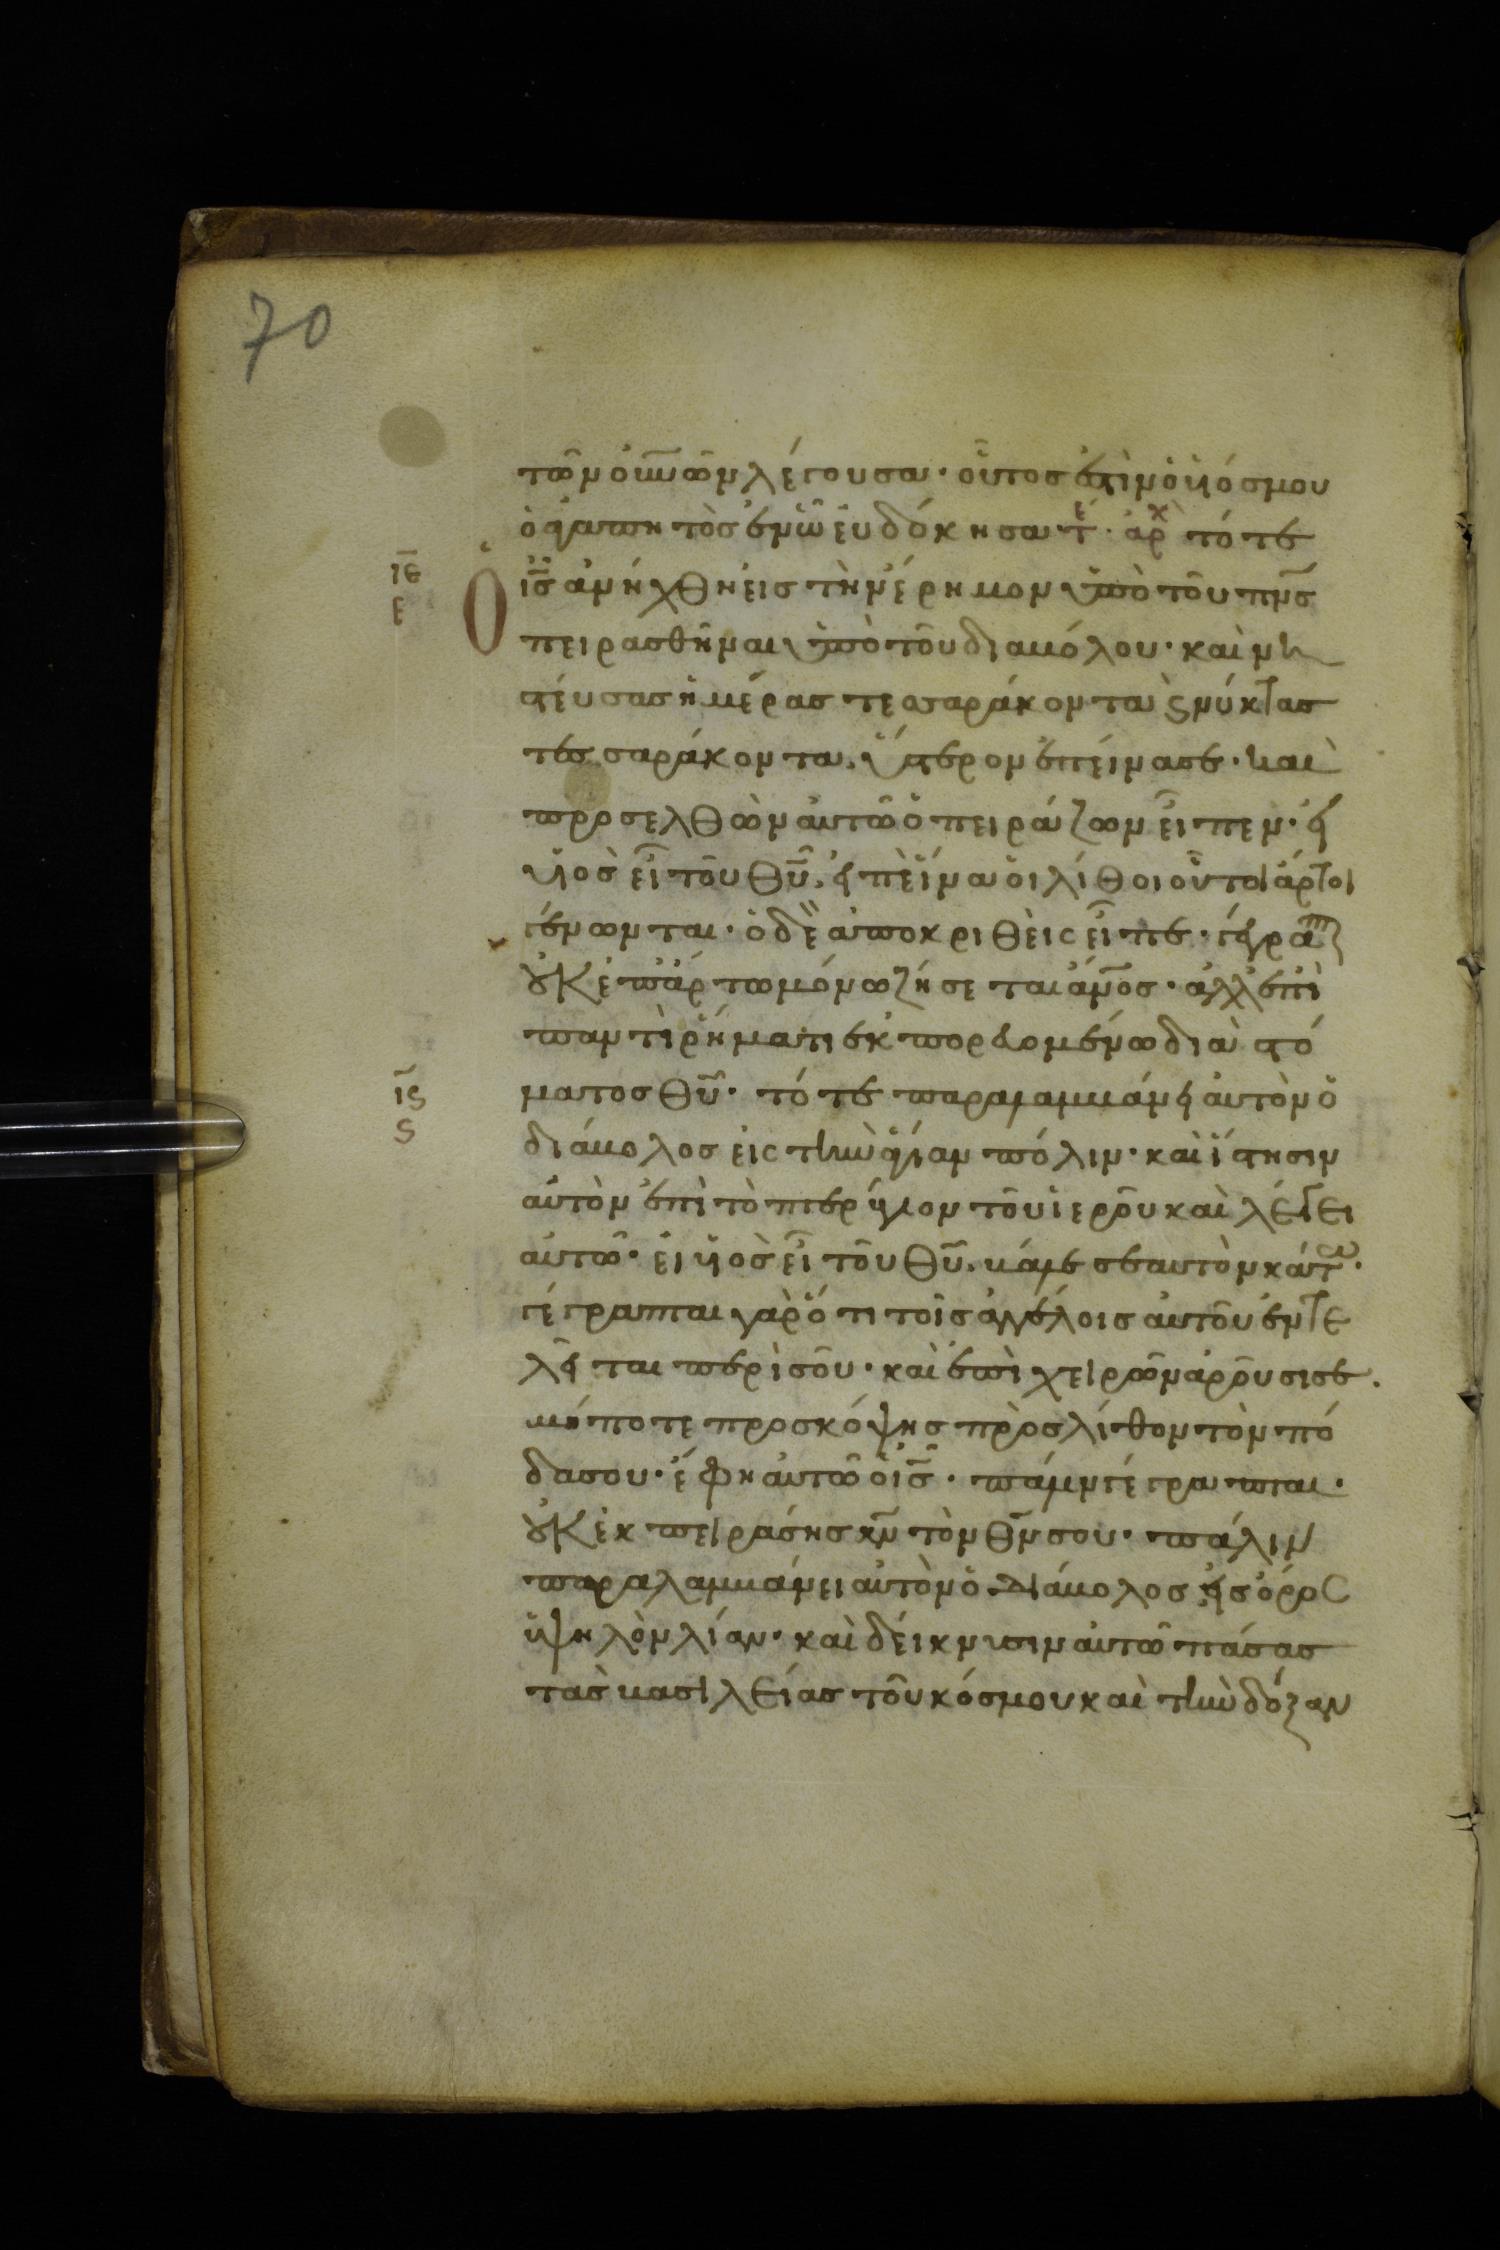 70
τῶν οὐνῶν λέγουσα· οὗτος ἐστὶν ὁ υἱός μου
ὁ ἀγαπητὸς ἐν ὧ εὐδόκησα· τε· ἀρχ τότε
ιε
ε
Ὁ ις ἀνήχθη εἰς τὴν ἔρημον ὑπὸ τοῦ πνς
πειρασθῆναι ὑπὸ τοῦ διαβόλου· καὶ νη
στεύσας ἡμέρας τεσσαράκοντα ϗ νύκτας
τεσσαράκοντα, ὕστερον ἐπείνασε· καὶ
προσελθὼν αὐτῶ ὁ πειράζων εἶπεν· εἰ
υἱὸς εἶ τοῦ θυ, εἰπὲ ἵνα οἱ λίθοι οὗτοι ἄρτοι
γένωνται· ὁ δὲ ἀποκριθεὶς εἶπε· γέγραπ
οὐκ ἐπ ἄρτω μόνω ζήσεται ἀνος· ἀλλ ἐπὶ
παντὶ ῥήματι ἐκπορευομένω διὰ στό
ματος θυ· τότε παραλαμβάνει αὐτὸν ὁ
ις
ς
διάβολος εἰς τὴν ἁγίαν πόλιν· καὶ ἵστησιν
αὐτὸν ἐπὶ τὸ πτερύγιον τοῦ ἱεροῦ καὶ λέγει
αὐτῶ· εἰ υἱὸς εἶ τοῦ θυ, βάλε σεαυτὸν κάτω·
γέγραπται γὰρ ὅτι τοῖς ἀγγέλοις αὐτοῦ ἐντε
λεῖται περὶ σοῦ· καὶ ἐπὶ χειρῶν ἀροῦσι σε.
μήποτε προσκόψης πρὸς λίθον τὸν πό
δα σου· ἔφη αὐτῶ ὁ ις· πάλιν γέγραπται·
οὐκ ἐκπειράσης κν τὸν θν σου· πάλιν
παραλαμβάνει αὐτὸν ὁ διάβολος εἰς ὄρος
ὑψηλὸν λίαν· καὶ δείκνυσιν αὐτῶ πάσας
τὰς βασιλείας τοῦ κόσμου καὶ τὴν δόξαν